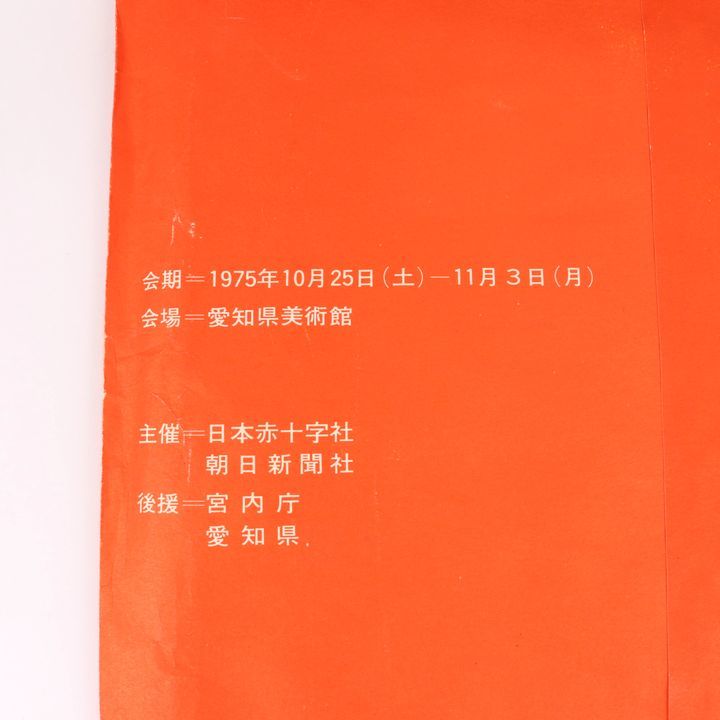 会期＝1975年10月25日（土）—11月3日（月）
会場＝愛知県美術館
主催＝日本赤十字社
朝日新聞社
後援＝宮内庁
愛知県